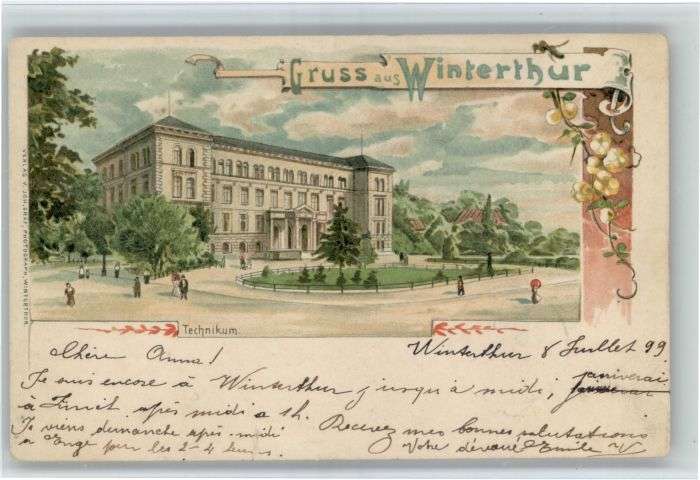 Gruss aus Winterthur
VERLAG V. JOH. GRAF, PHOTOGRAPH, WINTERTHUR
Technikum.
Chère Anna!
Winterthur 8 Juillet 99
Je suis encore à Winterthur jusqu'à midi, j'arriverai
à Zurich après midi à 1h.
Je viens demanche après-midi
à Enge pour les 2-4 heurs.
Recevez mes bonnes salutations
Votre dévoué Emile